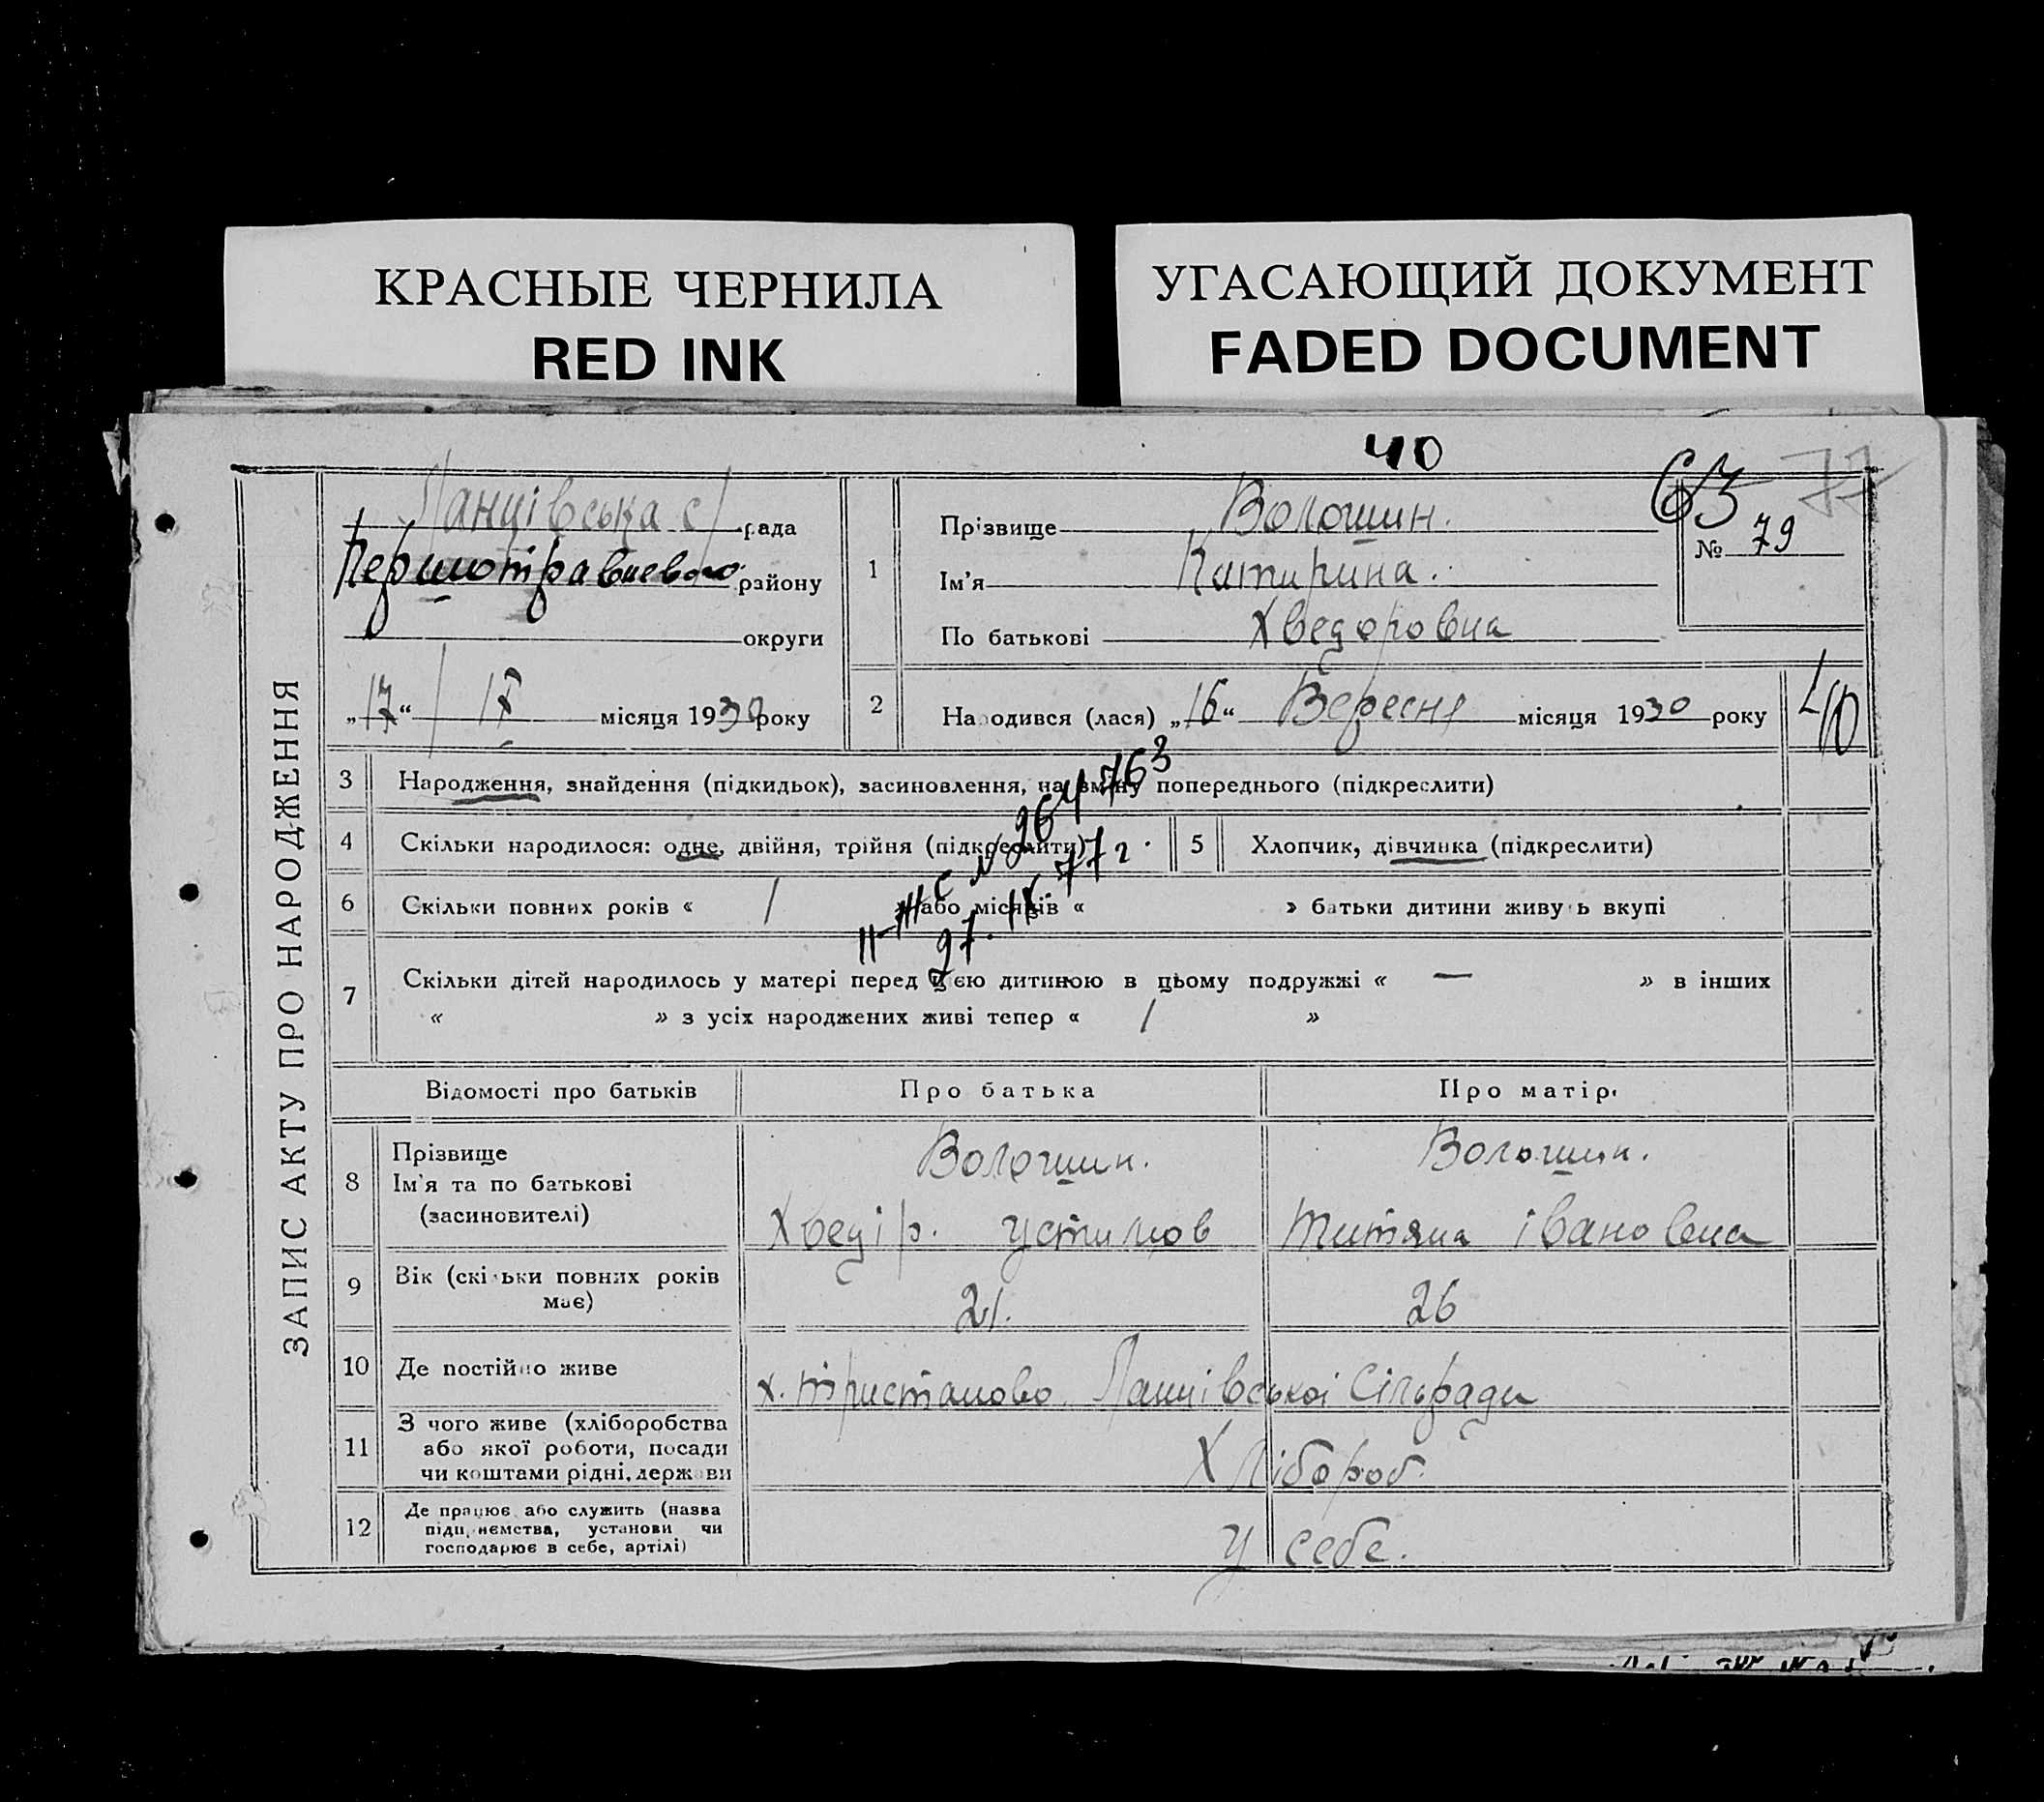 КРАСНЫЕ ЧЕРНИЛА
RED INK
УГАСАЮЩИЙ ДОКУМЕНТ
FADED DOCUMENT
40
ЗАПИС АКТУ ПРО НАРОДЖЕННЯ
Ланцівська с/рада
Першотравневого району
округи
„17“ / IX місяця 1930 року
1 Прізвище Волошин.
Ім'я Катирина.
По батькові Хведоровна
63 77
№ 79
2 Народився (лася) „16“ Вересня місяця 1930 року
3 Народження, знайдення (підкидьок), засиновлення, на зміну попереднього (підкреслити)
4 Скільки народилося: одне, двійня, трійня (підкреслити)
5 Хлопчик, дівчинка (підкреслити)
6 Скільки повних років « 1 » або місяців « » батьки дитини живуть вкупі
II-ЖС № 264763
27. IX. 77 г.
7 Скільки дітей народилось у матері перед цією дитиною в цьому подружжі « — » в інших
« » з усіх народжених живі тепер « 1 »
Відомості про батьків Про батька Про матір
8 Прізвище Волошин. Волошин.
Ім'я та по батькові
(засиновителі) Хведір. Устимов Титяна івановна
9 Вік (скільки повних років
має) 21. 26
10 Де постійно живе х. Тристаново. Ланцівської Сільради
11 З чого живе (хліборобства
або якої роботи, посади
чи коштами рідні, держави Хлібороб.
12 Де працює або служить (назва
підприємства, установи чи
господарює в себе, артілі) У себе.